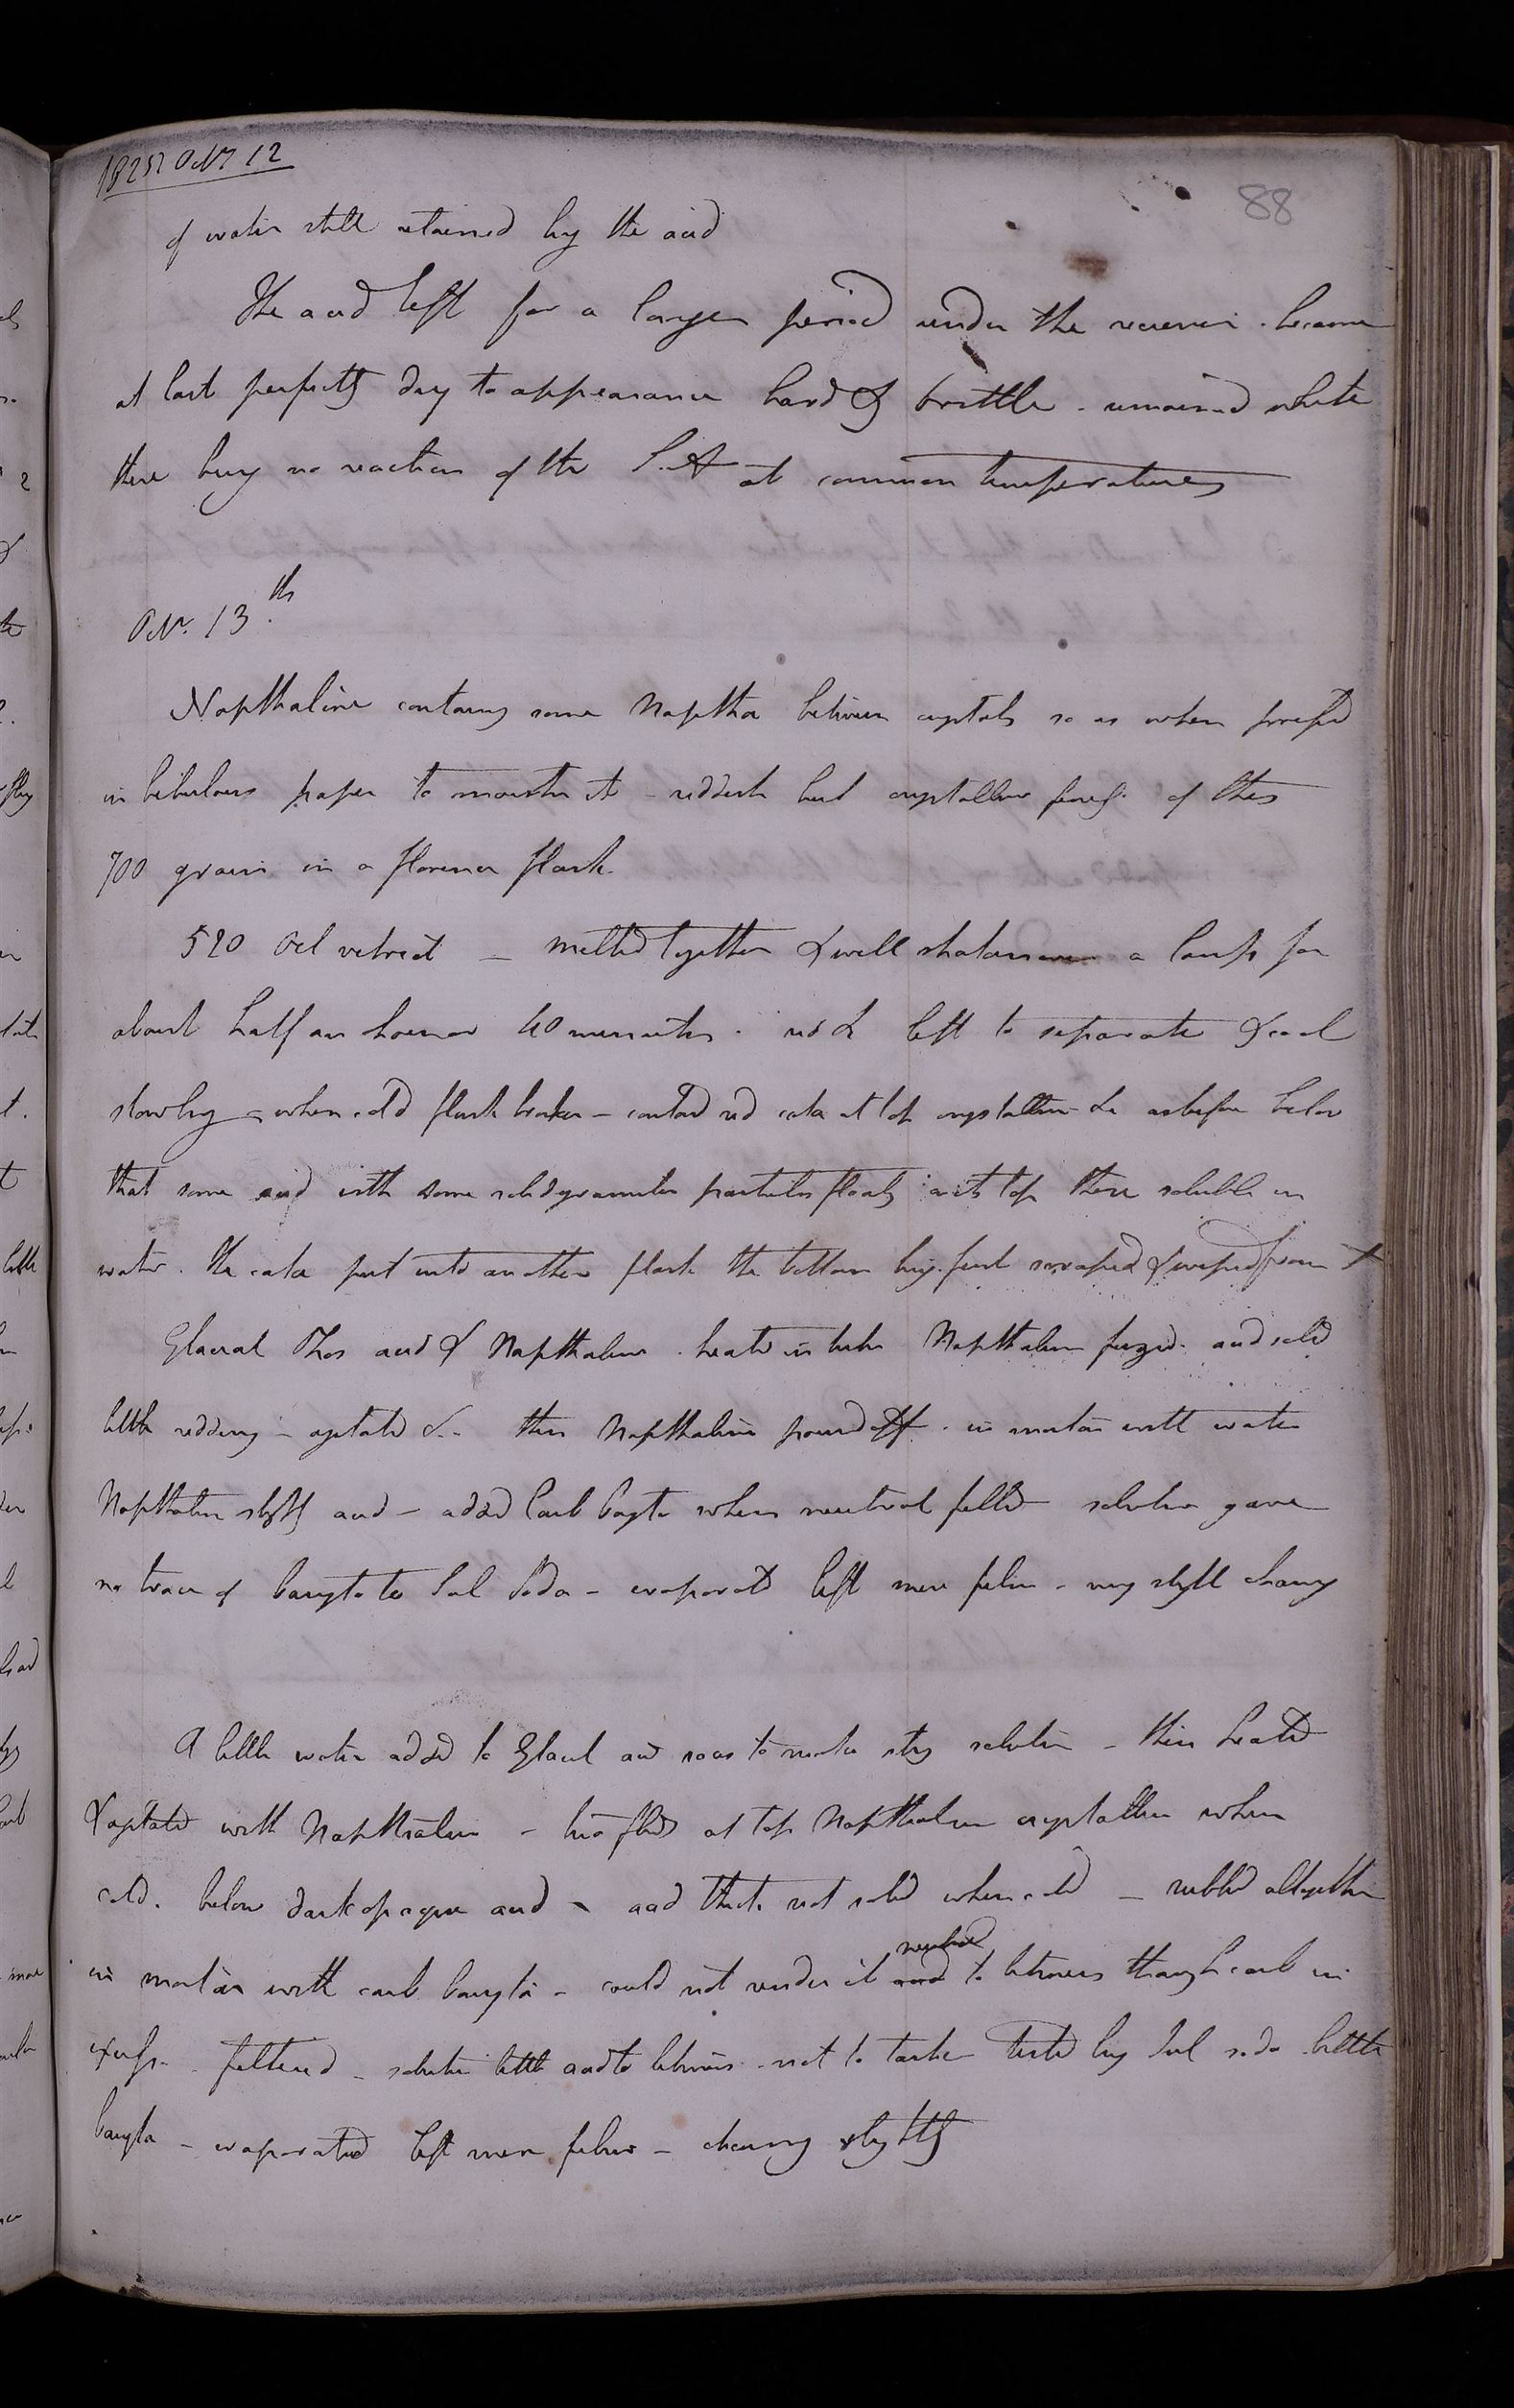 1825 Octr 12
88
of water still retained by the acid
The acid left for a longer period under the receiver . became
at last perfectly dry to appearance hard & brittle - remained white
there being no reaction of the S.A at common temperatures
Octr. 13th
Napthaline containing some Naptha between crystals so as when pressed
in bibulous paper to moisten it - reddish but crystalline &c of this
700 grains in a florence flask.
520 Oil vitriol - melted together & well shaken over a lamp for
about half an hour or 40 minutes . red & left to separate & cool
slowly - when cold flask broken - contained red cake at top crystalline &c as before below
that some acid with some solid granular particles floating at its top these soluble in
water . the cake put into another flask the bottom being first scraped & wiped from it
Glacial Phos acid & Napthaline . heated in tube Napthaline fuzed . acid solid
little reddening - agitated &c - then Napthaline poured off . in mortar with water
Napthaline slightly acid - added Carb baryta when neutral filtd solution gave
no trace of baryta to Sul Soda - evaporated left mere film - very slight charring
A little water added to Glacial acid so as to make strong solution - then heated
& agitated with Napthaline - two fluids at top Napthaline crystalline when
cold . below dark opaque acid - acid thick not solid when cold - rubbed altogether
in mortar with carb baryta - could not render it neutral to litmus though carb in
excess - filtered - solution little acid to litmus - not to taste tested by Sul soda little
baryta - evaporated left mere film - charring slightly